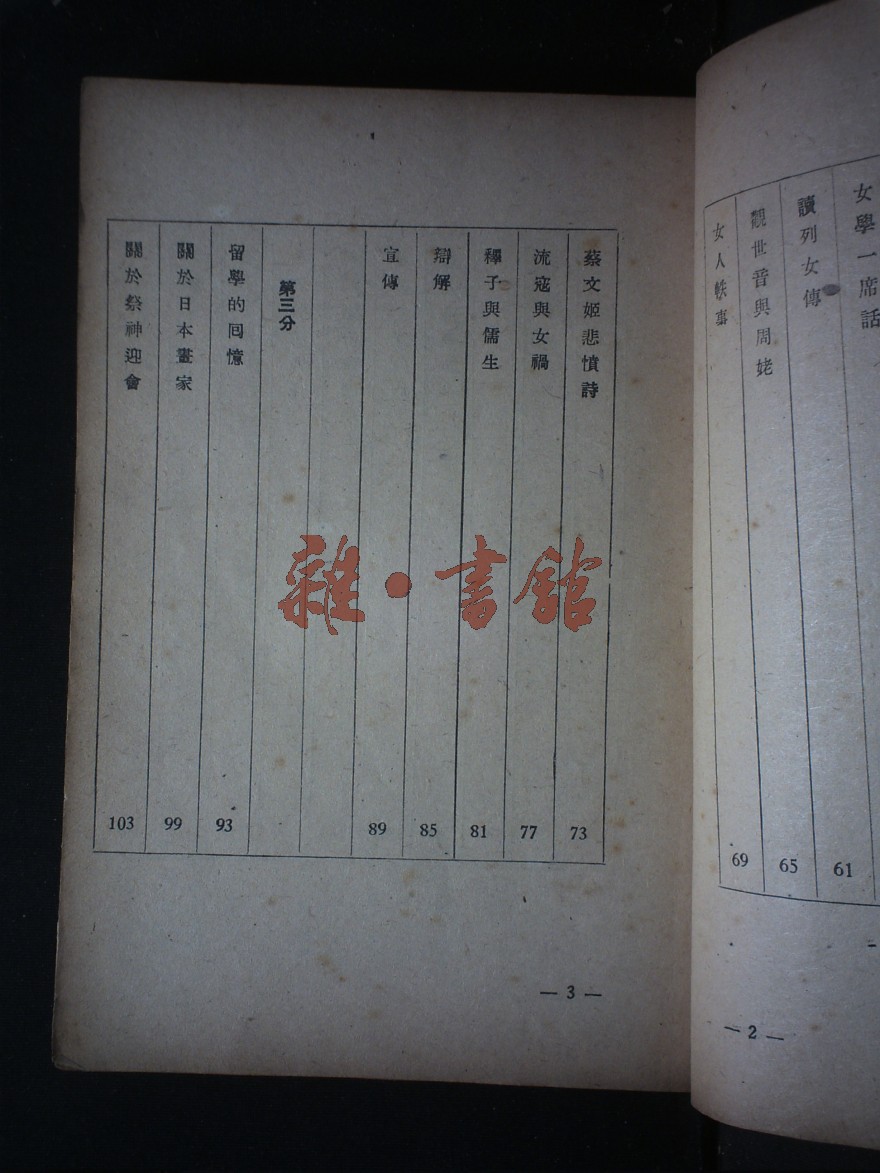 女學一席話
讀列女傳 61
觀世音與周姥 65
女人軼事 69
— 2 —
蔡文姬悲憤詩 73
流寇與女禍 77
釋子與儒生 81
辯解 85
宣傳 89
第三分
留學的回憶 93
關於日本畫家 99
關於祭神迎會 103
— 3 —
雜·書館